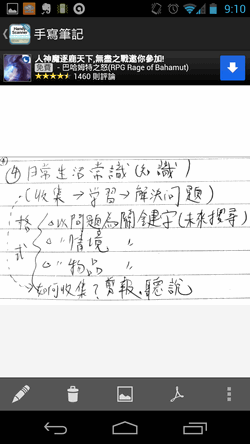 9:10
手寫筆記
人神魔逐鹿天下,無盡之戰邀你參加!
免費 - 巴哈姆特之怒(RPG Rage of Bahamut)
1460 則評論
④日常生活常識(知識)
(收集→學習→解決問題)
格式
△以問題為關鍵字(未來搜尋)
△〃情境 〃
△〃物品 〃
如何收集?剪報、聽說